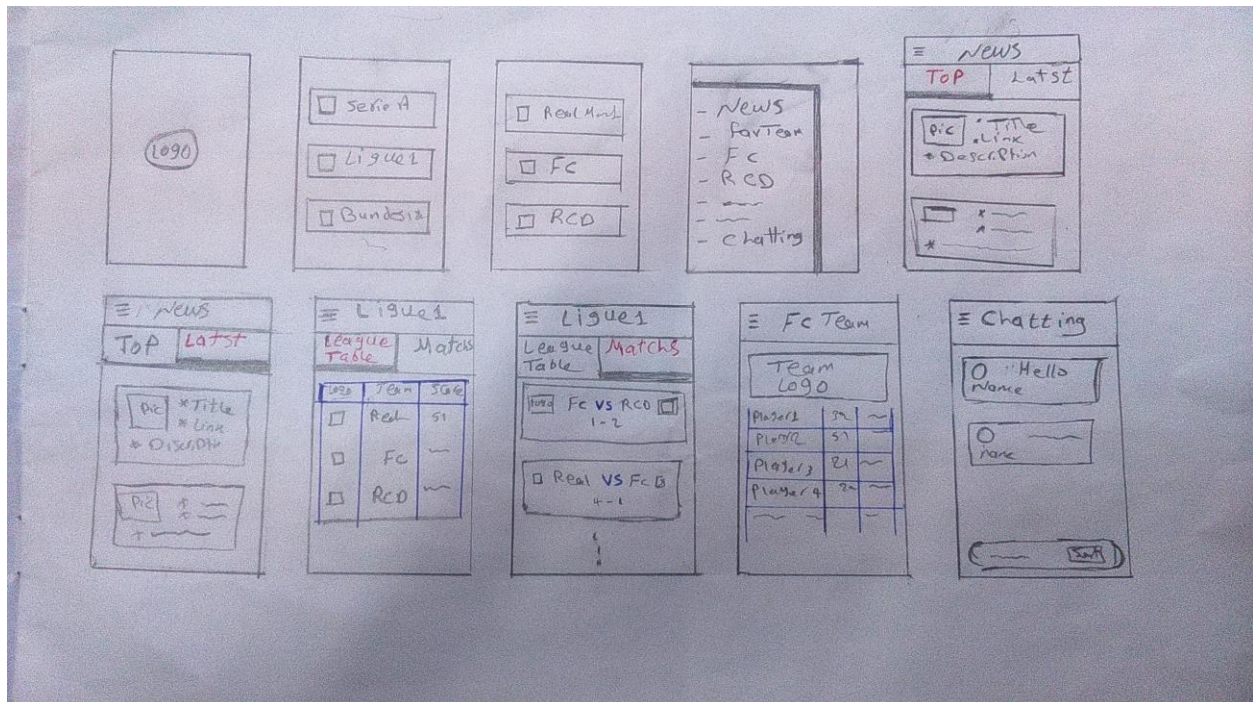 LOGO
Serie A
Ligue1
Bundesli
Real Mard
FC
RCD
- News
- FavTeam
- FC
- RCD
- Chatting
News
TOP Latst
Pic * Title
* Link
* Description
*
*
*
News
TOP Latst
Pic * Title
* Link
* Discriptn
Pic *
*
*
Ligue1
League Table Matchs
Logo Team Score
Real 51
FC
RCD
Ligue1
League Table Matchs
logo FC VS RCD
1-2
Real VS FC
4-1
FC Team
Team
Logo
Player1 32
Player2 51
Player3 21
Player4
Chatting
Hello
Name
name